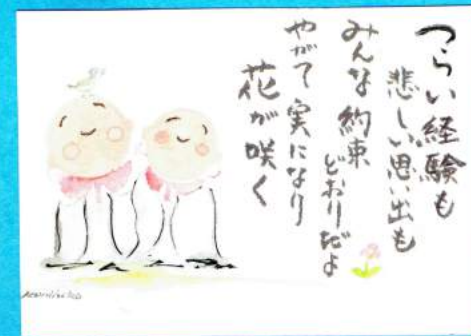 つらい経験も
悲しい思い出も
みんな約束
どおりだよ
やがて実になり
花が咲く